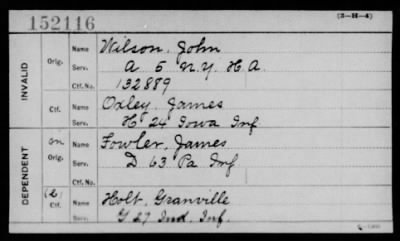 152116
(3-H-4)
INVALID
Orig.
Name Wilson, John
Serv. A 5 N.Y. H.A.
Ctf. No. 132889
Ctf.
Name Oxley, James
Serv. H 24 Iowa Inf
DEPENDENT
on
Orig.
Name Fowler, James
Serv. D 63 Pa Inf
Ctf. No.
Ctf.
Name Holt, Granville
Serv. G 27 Ind. Inf.